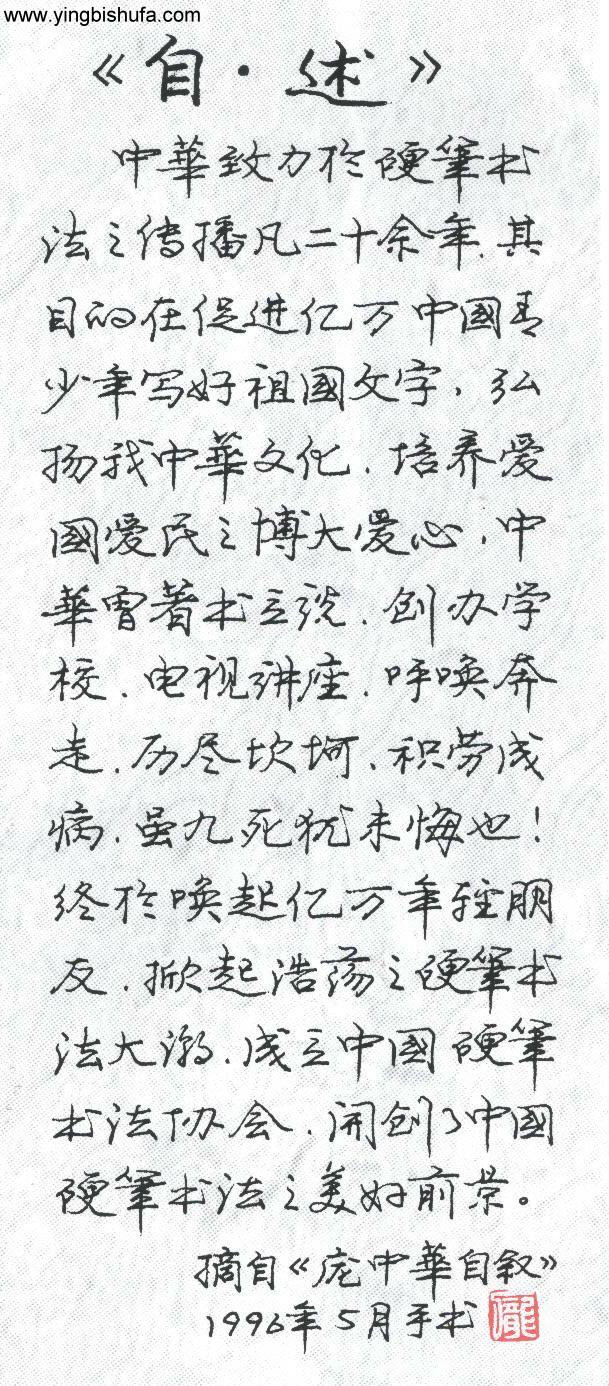 www.yingbishufa.com
《自·述》
中華致力於硬筆书
法之传播凡二十余年.其
目的在促进亿万中國青
少年写好祖國文字，弘
扬我中華文化.培养爱
國爱民之博大爱心，中
華曾著书立说.创办学
校.电视讲座.呼唤奔
走.历尽坎坷、积劳成
病.虽九死犹未悔也！
终於唤起亿万年轻朋
友.掀起浩荡之硬筆书
法大潮.成立中國硬筆
书法协会.开创了中國
硬筆书法之美好前景。
摘自《庞中華自叙》
1996年5月手书
龐